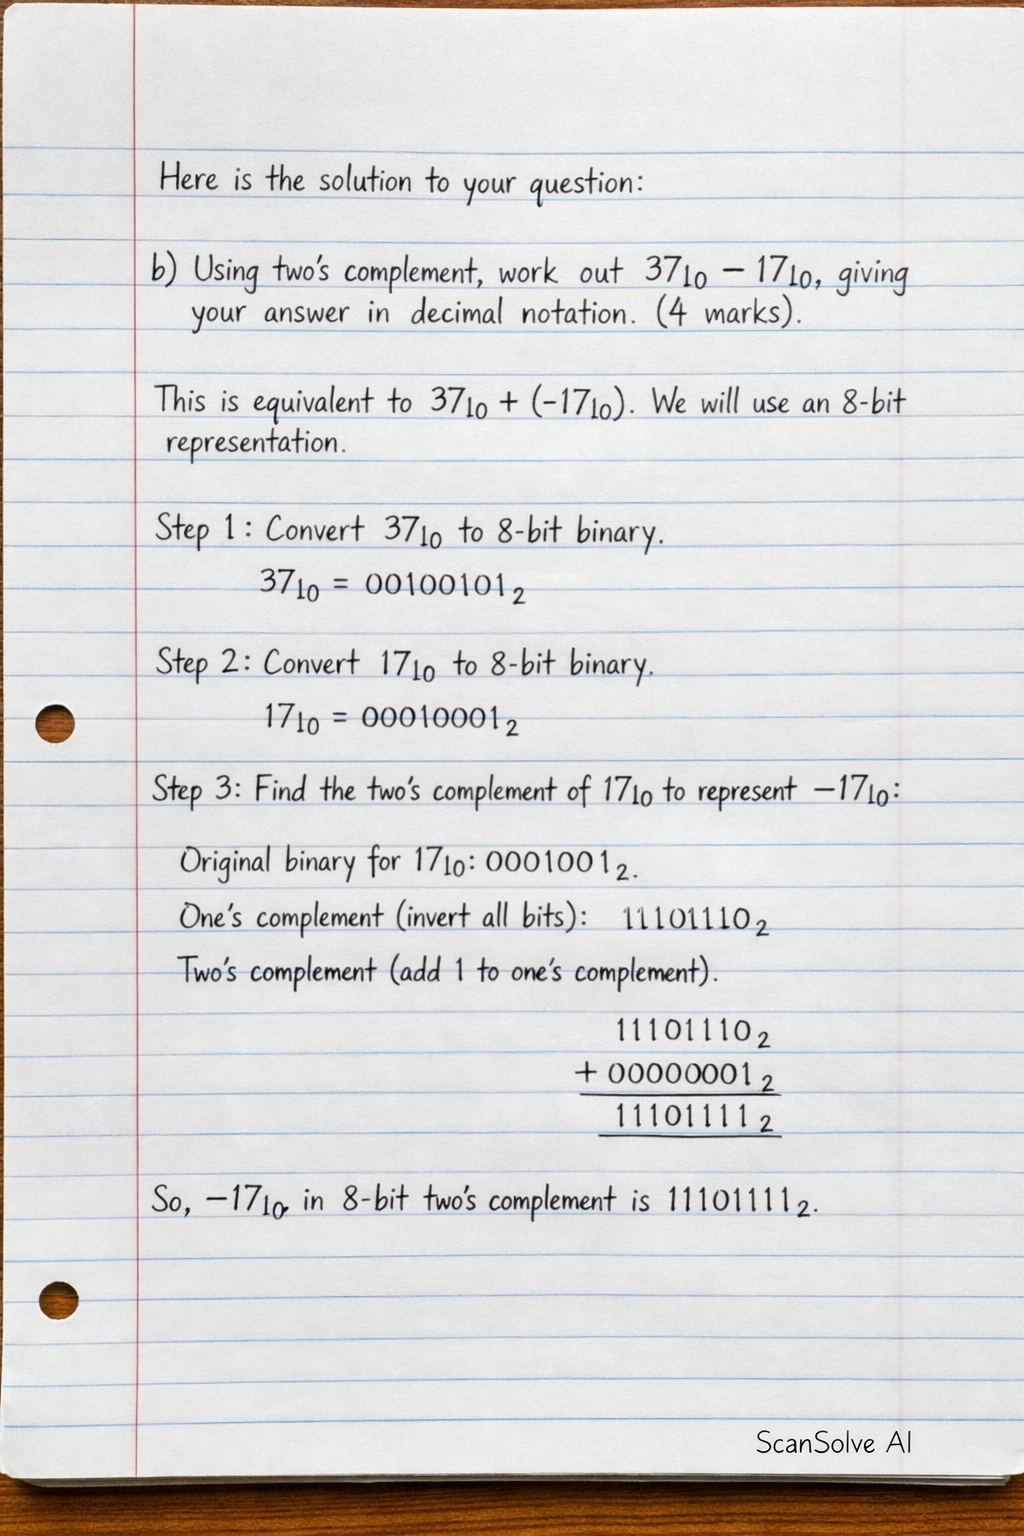 Here is the solution to your question:
b) Using two's complement, work out 37₁₀ − 17₁₀, giving
your answer in decimal notation. (4 marks).
This is equivalent to 37₁₀ + (−17₁₀). We will use an 8-bit
representation.
Step 1: Convert 37₁₀ to 8-bit binary.
37₁₀ = 00100101₂
Step 2: Convert 17₁₀ to 8-bit binary.
17₁₀ = 00010001₂
Step 3: Find the two's complement of 17₁₀ to represent −17₁₀:
Original binary for 17₁₀: 0001001₂.
One's complement (invert all bits): 11101110₂
Two's complement (add 1 to one's complement).
11101110₂
+ 00000001₂
11101111₂
So, −17₁₀, in 8-bit two's complement is 11101111₂.
ScanSolve AI